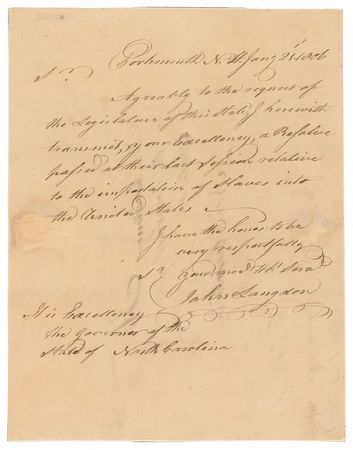 Portsmouth N. H. Jany 25 1806
Sr.
Agreably to the request of
the Legislature of this State, I herewith
transmit, your Excellency, a Resolve
passed at their last session relative
to the importation of slaves into
the United States
I have the honor to be
very respectfully
Sr. your most hbl. Serv
John Langdon
His Excellency
the Governor of the
State of North Carolina